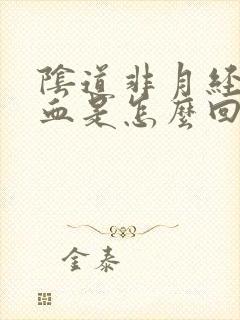 陰道非月経
血是怎麼回
金泰